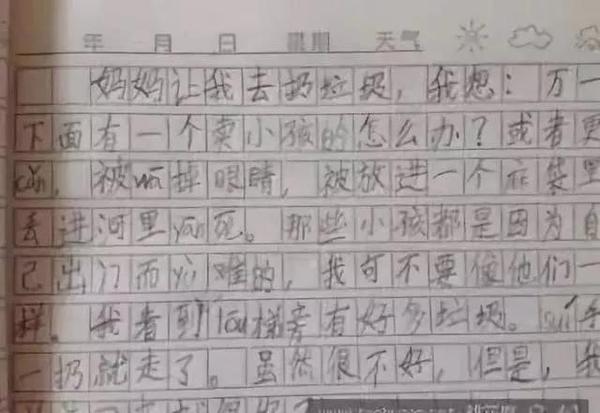 年 月 日 星期 天气
妈妈让我去扔垃圾,我想:万一
下面有一个卖小孩的怎么办?或者更
cǎn,被wā掉眼睛,被放进一个麻袋里
丢进河里yān死。那些小孩都是因为自
己出门而yù难的,我可不要像他们一
样。我看到lóu梯旁有好多垃圾。suí手
一扔就走了。虽然很不好,但是,我